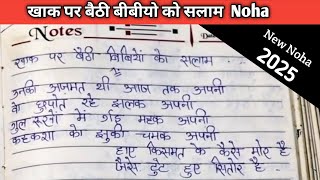 खाक पर बैठी बीबीयो को सलाम Noha
Notes
New Noha
2025
खाक पर बैठी बिबियों को सलाम
उनकी अज़मत थी आज तक अपनी
के दुरपोत रहे झलक अपनी
गुल रुखो में छोड़ महक अपनी
कहकशा को झुकी चमक अपनी
हाए किसमत के कैसे मोर है
जैसे टूटे हुए सितारे है